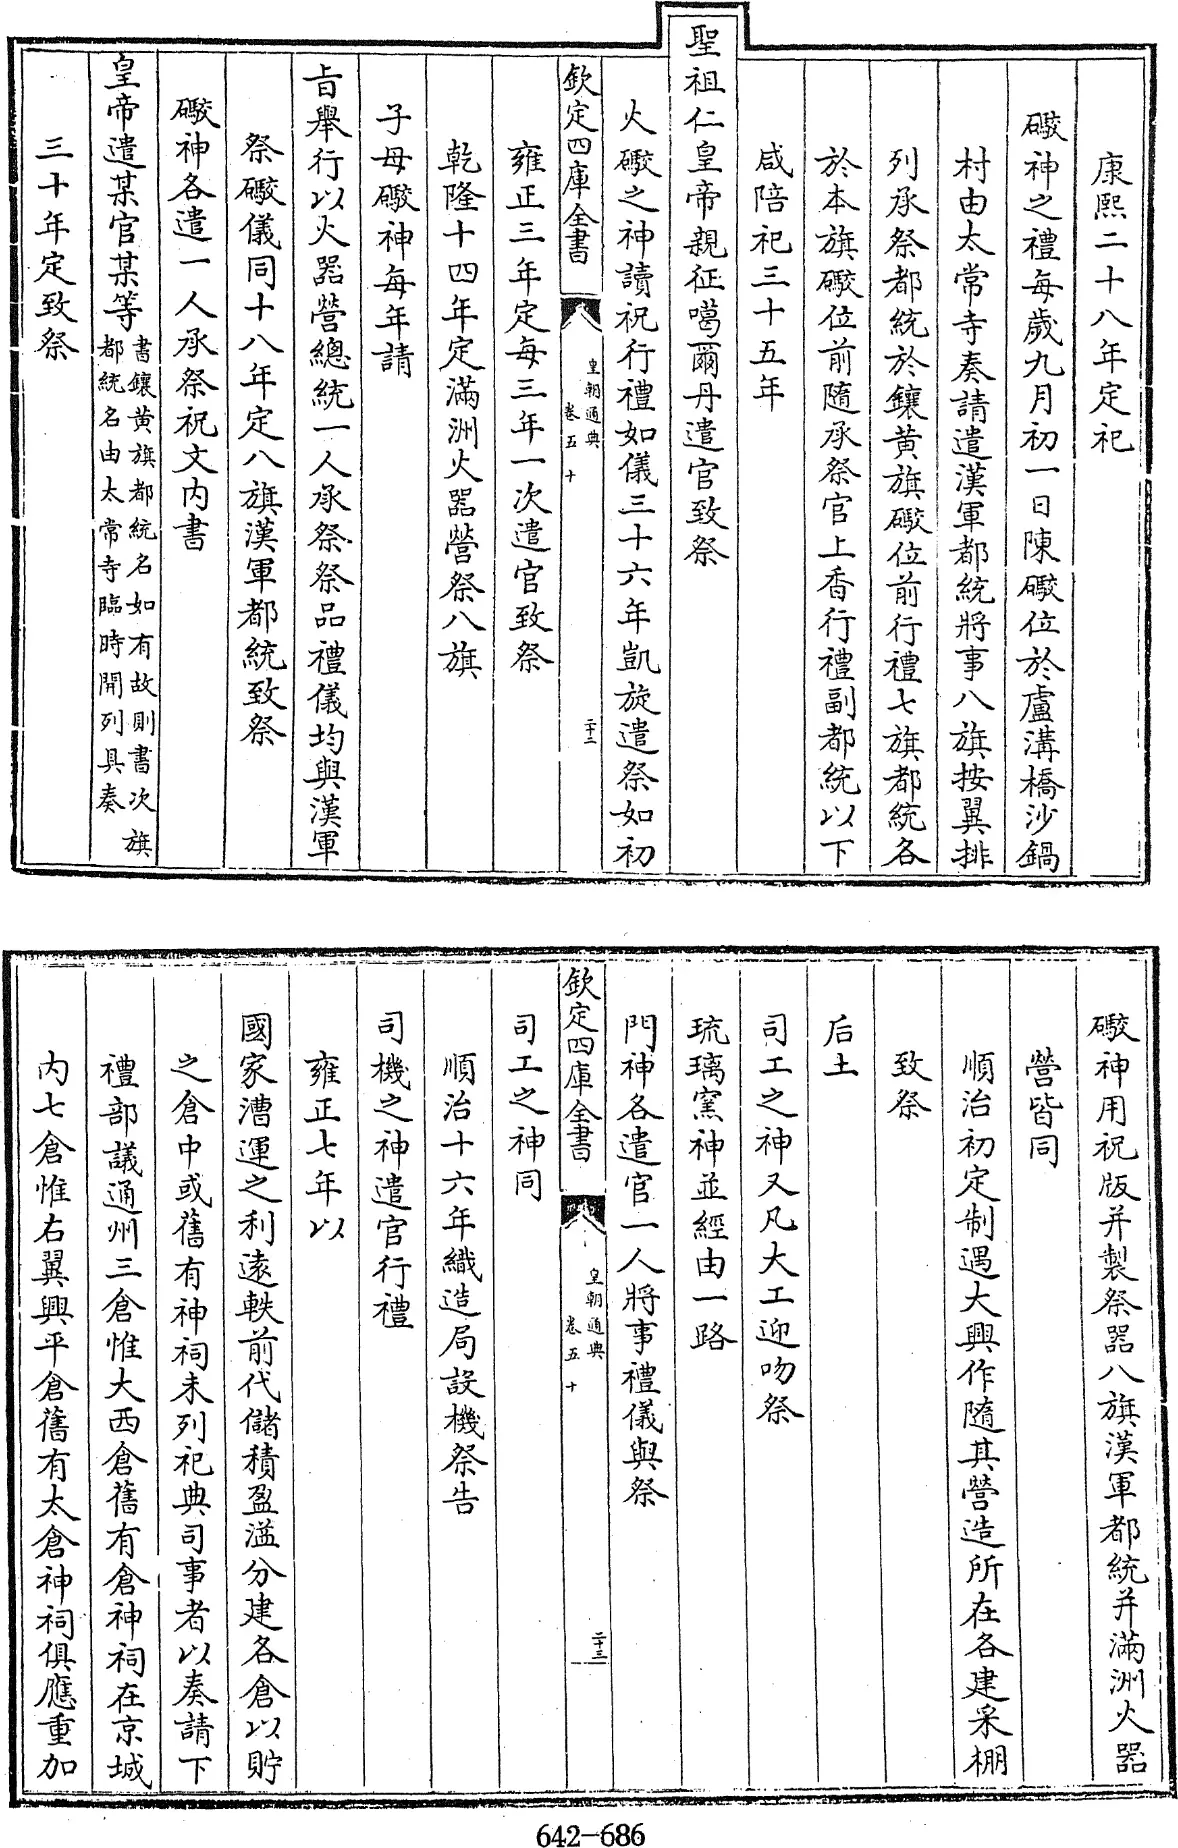 康熙二十八年定祀
礮神之禮每歲九月初一日陳礮位於盧溝橋沙鍋
村由太常寺奏請遣漢軍都統將事八旗按翼排
列承祭都統於鑲黄旗礮位前行禮七旗都統各
於本旗礮位前隨承祭官上香行禮副都統以下
咸陪祀三十五年
聖祖仁皇帝親征噶爾丹遣官致祭
火礮之神讀祝行禮如儀三十六年凱旋遣祭如初
欽定四庫全書
皇朝通典
卷五十
二十二
雍正三年定每三年一次遣官致祭
乾隆十四年定滿洲火器營祭八旗
子母礮神每年請
旨舉行以火器營總統一人承祭祭品禮儀均與漢軍
祭礮儀同十八年定八旗漢軍都統致祭
礮神各遣一人承祭祝文内書
皇帝遣某官某等
書鑲黄旗都統名如有故則書次旗
都統名由太常寺臨時開列具奏
三十年定致祭
礮神用祝版并製祭器八旗漢軍都統并滿洲火器
營皆同
順治初定制遇大興作隨其營造所在各建采棚
致祭
后土
司工之神又凡大工迎吻祭
琉璃窯神並經由一路
門神各遣官一人將事禮儀與祭
欽定四庫全書
皇朝通典
卷五十
二十三
司工之神同
順治十六年織造局設機祭告
司機之神遣官行禮
雍正七年以
國家漕運之利遠軼前代儲積盈溢分建各倉以貯
之倉中或舊有神祠未列祀典司事者以奏請下
禮部議通州三倉惟大西倉舊有倉神祠在京城
内七倉惟右翼興平倉舊有太倉神祠俱應重加
642-686